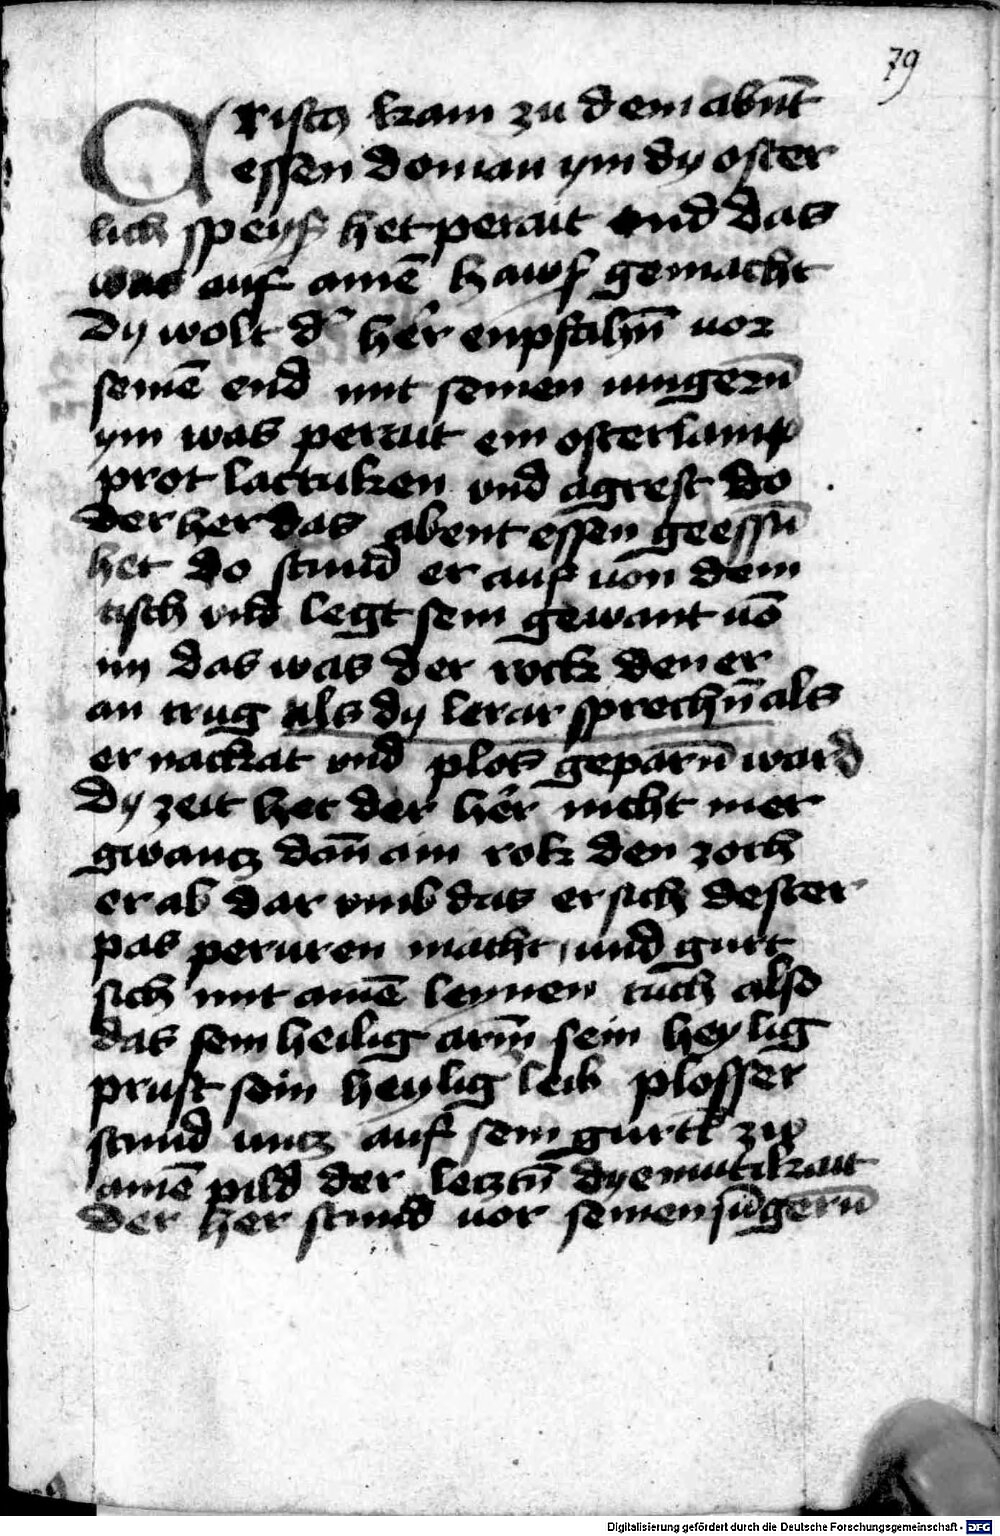 79
CRistꝫ kam zu dem abnt̄
essen do man ym dy oster
lich speyſ het perait vnd das
was auf aimē hawſ gemacht
Dy wolt d' her enpfalhn̄ uor
seinē end mit seinen iungern̄
ym was perait ein osterlamp
prot lactuken vnd agrest Do
der her das abent essen geessn̄
het do stund er auf uon dem
tisch vnd legt sein gewant uō
im das was der rock den er
an trug als dy lerar sprechn̄ als
er nackat vnd plos geparn̄ ward
Dy zeit het der her nicht mer
gwantz dan̄ ain rok den zoch
er ab dar vmb das er sich dester
pas peraiten macht und gurt
sich mit aimē leynen tuch also
das sein heilig arm̄ sein heylig
prust sein heylig leib plosser
stund untz auf sein gurtl zw
aimē pild der letztn̄ dyemutikait
der her stund uor seinen jūgern̄
Digitalisierung gefördert durch die Deutsche Forschungsgemeinschaft - DFG